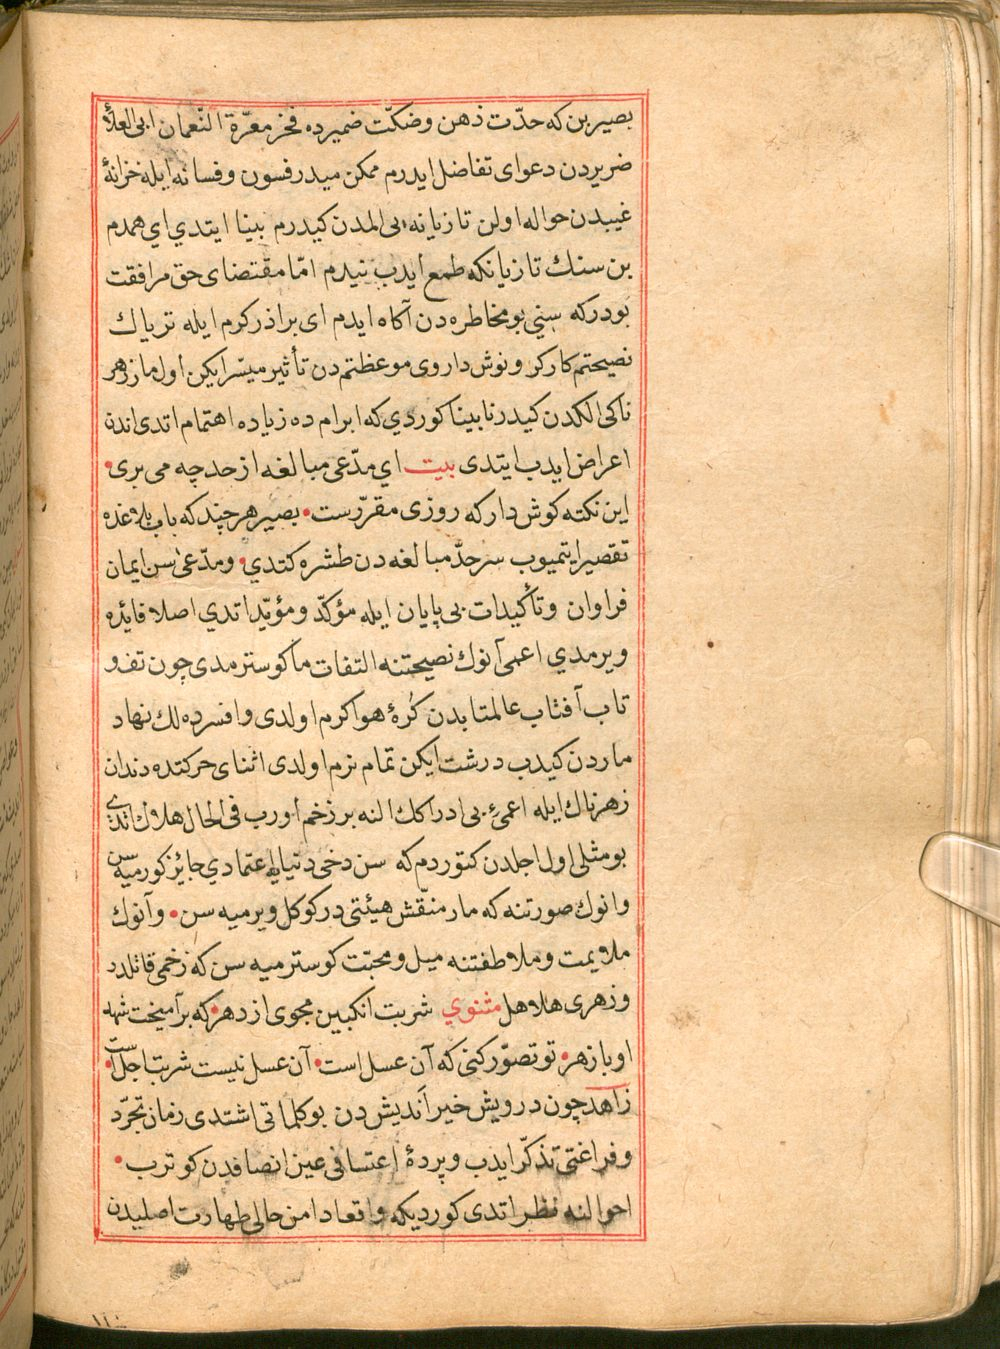 بصیر بن که حدّت ذهن وضکّت ضمیرده فخر معرّة النّعمان ابی العلاء
ضریردن دعوای تفاضل ایدرم ممکن میدر فسون و فسانه ایله خزانهٔ
غیبدن حواله اولن تازیانه‌یی المدن کیدرم بینا ایتدي اي همدم
بن سنك تازیانكه طمع ایدب نیدرم امّا مقتضای حق مرافقت
بودرکه سني بو مخاطره‌دن آکاه ایدم ای براذر کرم ایله تریاك
نصیحتم کارکر و نوش داروی موعظتمدن تأثیر میسّر ایکن اول مار زهر
ناکی الکدن کیدر نابینا کوردي که ابرام ده زیاده اهتمام اتدی اندن
اعراض ایدب ایتدی بیت اي مدّعی مبالغه از حد چه می بری
این نکته کوش دار که روزی مقرّرست بصیر هر چند که باب بلاغده
تقصیر ایتمیوب سرحدّ مبالغه دن طشره کتدي ومدّعیٰ‌سن ایمان
فراوان وتأکیدات بی پایان ایله مؤکدّ و مؤیّد اتدي اصلا فائده
ویرمدي اعمی آنوك نصیحتنه التفات ما کوسترمدی چون تف و
تاب آفتاب عالمتابدن کرهٔ هوا کرم اولدی وافسرده لك نهاد
ماردن کیدب درشت ایکن تمام نرم اولدی اثنای حرکتده دندان
زهرناك ایله اعمیء بی ادراكك النه بر زخم اورب فی الحال هلاك اتدي
بو مثلی اول اجلدن کتوردم که سن دخی دنیایه اعتمادي جائز کورمیه سن
وانوك صورتنه که مار منقّش هیئتی در کوکل ویرمیه سن وآنوك
ملایمت وملاطفتنه میل و محبّت کوسترمیه سن که زخمی قاتلدر
وزهری هلاهل مثنوي شربت انکبین مجوی از دهر که برآمیخت شهد
او با زهر تو تصوّر کنی که آن عسل است آن عسل نیست شربت اجل است
زاهد چون درویش خیر اندیش دن بو کلماتی اشتدی زمان تجرّد
و فراغتی تذکّر ایدب و پردهٔ اعتسافی عین انصافدن کوترب
احوالنه نظر اتدی کوردیکه واقعا دامن حالی طهارت اصلیدن